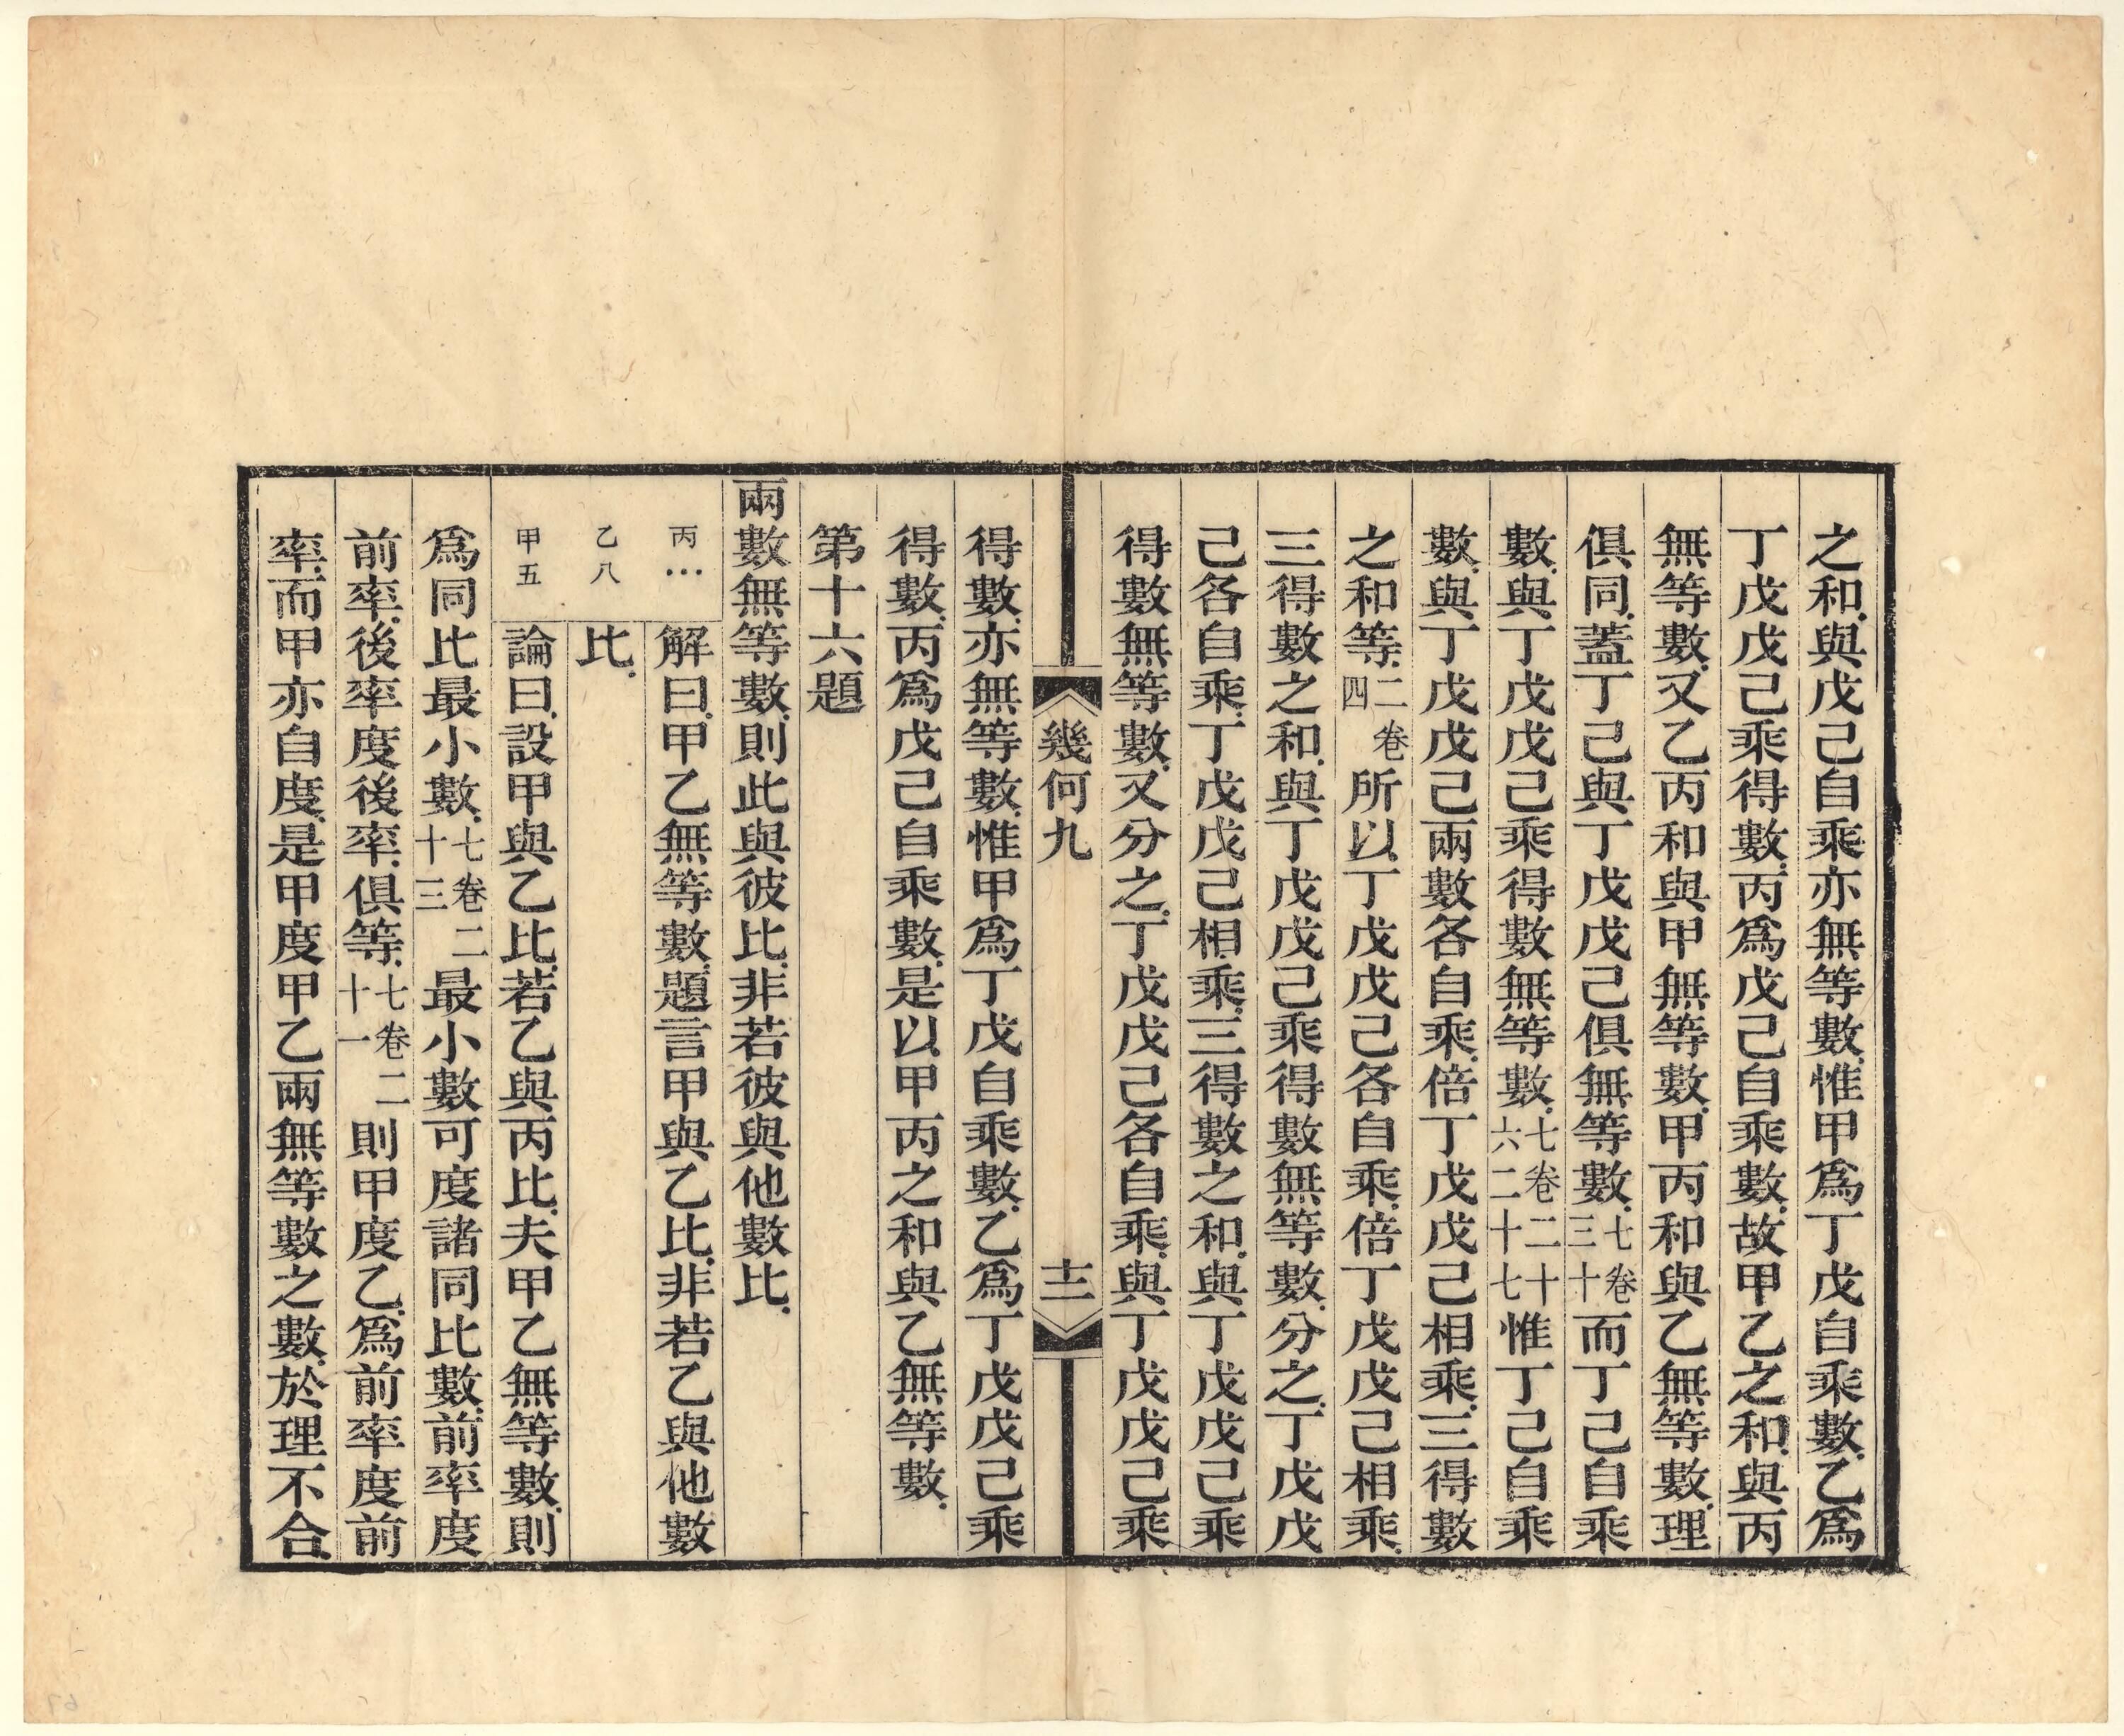 之和與戊己自乘亦無等數惟甲爲丁戊自乘數乙爲
丁戊戊己乘得數丙爲戊己自乘數故甲乙之和與丙
無等數又乙丙和與甲無等數甲丙和與乙無等數理
俱同蓋丁己與丁戊戊己俱無等數七卷三十而丁己自乘
數與丁戊戊己乘得數無等數七卷二十六二十七惟丁己自乘
數與丁戊戊己兩數各自乘倍丁戊戊己相乘三得數
之和等二卷四所以丁戊戊己各自乘倍丁戊戊己相乘
三得數之和與丁戊戊己乘得數無等數分之丁戊戊
己各自乘丁戊戊己相乘三得數之和與丁戊戊己乘
得數無等數又分之丁戊戊己各自乘與丁戊戊己乘
幾何九
十二
得數亦無等數惟甲爲丁戊自乘數乙爲丁戊戊己乘
得數丙爲戊己自乘數是以甲丙之和與乙無等數
第十六題
兩數無等數則此與彼比非若彼與他數比
丙…
乙八
甲五
解曰甲乙無等數題言甲與乙比非若乙與他數
比
論曰設甲與乙比若乙與丙比夫甲乙無等數則
爲同比最小數七卷二十三最小數可度諸同比數前率度
前率後率度後率俱等七卷二十一則甲度乙爲前率度前
率而甲亦自度是甲度甲乙兩無等數之數於理不合